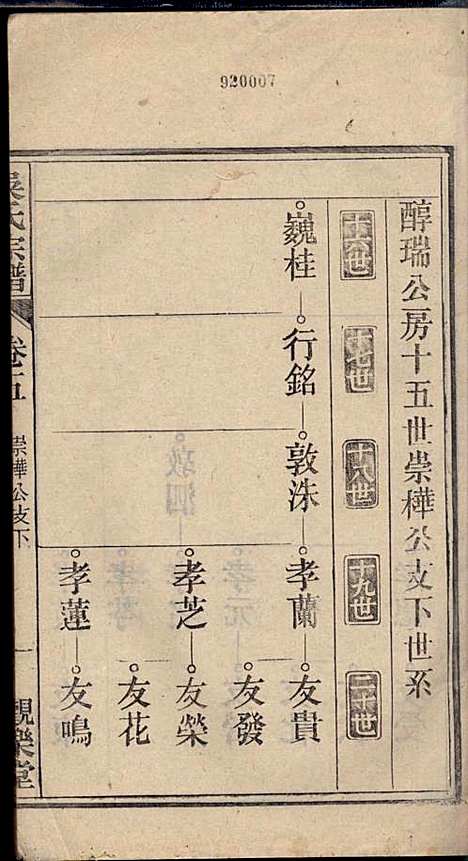 920007
醇瑞公房十五世崇樺公支下世系
十六世
十七世
十八世
十九世
二十世
巍桂
行銘
敦洙
孝蘭
友貴
友發
孝芝
友榮
友花
孝蓮
友鳴
吳氏宗譜
卷五
崇樺公支下
一
觀樂堂